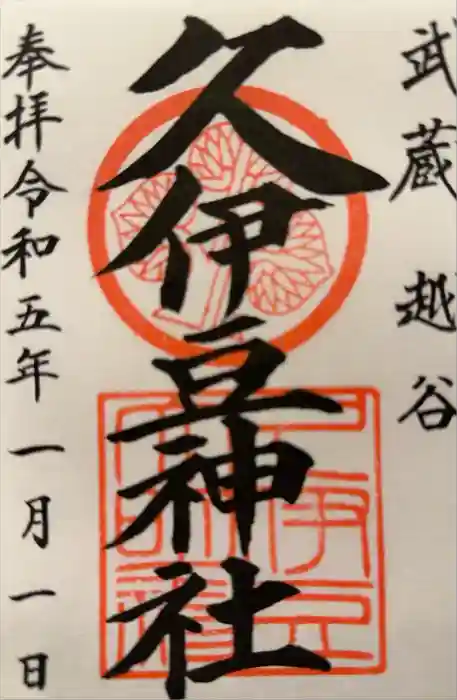 武蔵 越谷
久伊豆神社
奉拝令和五年一月一日